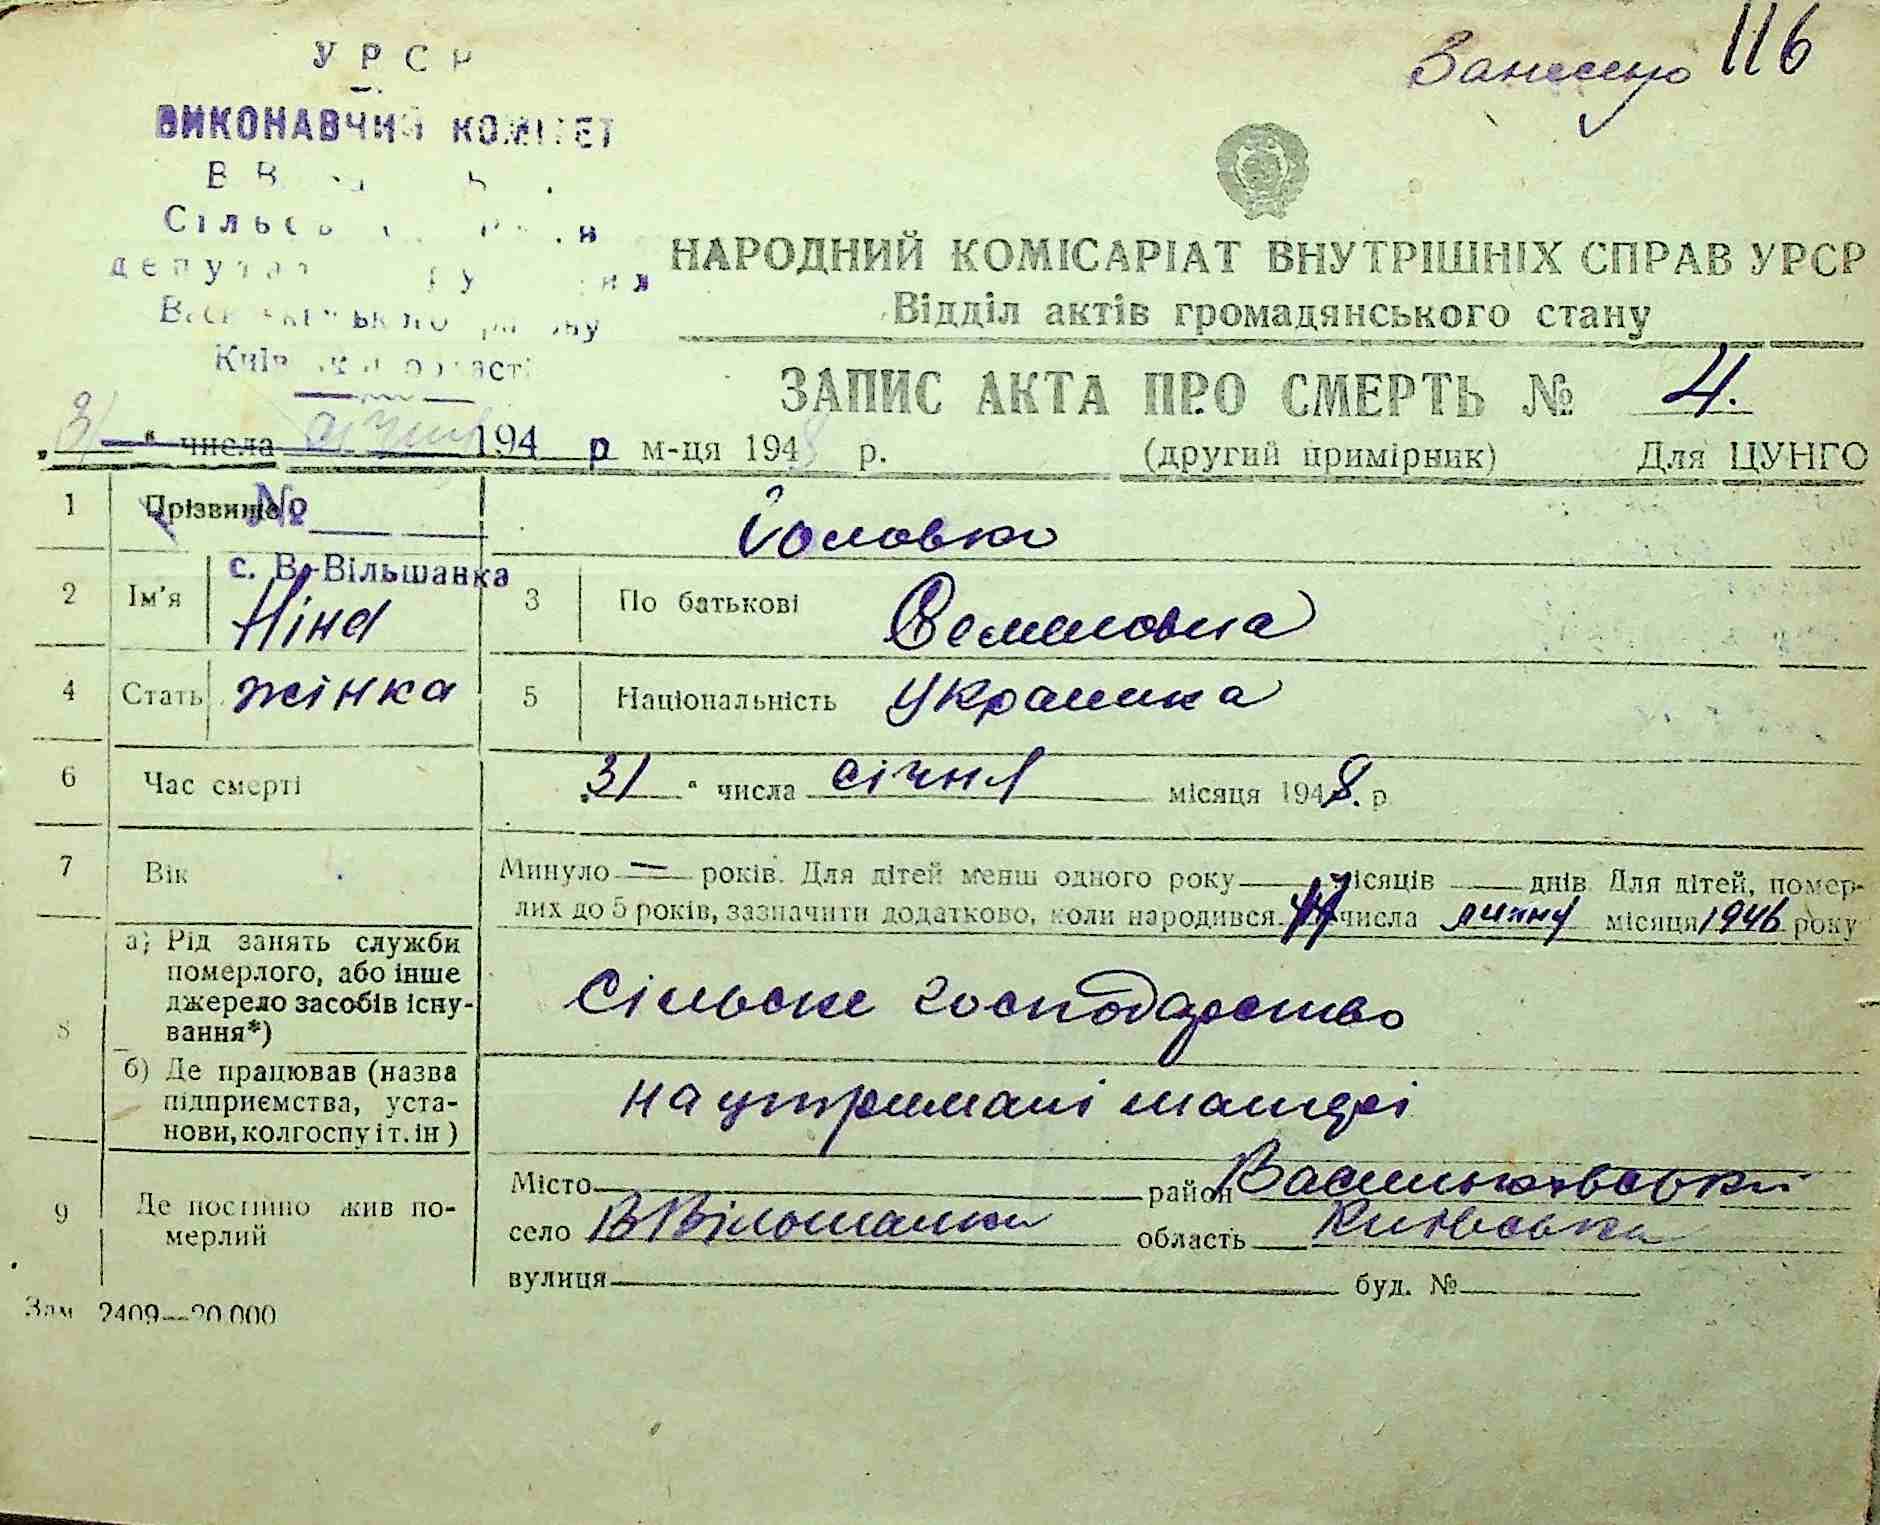 Занесено 116
УРСР
ВИКОНАВЧИЙ КОМІТЕТ
НАРОДНИЙ КОМІСАРІАТ ВНУТРІШНІХ СПРАВ УРСР
Відділ актів громадянського стану
Київської області
ЗАПИС АКТА ПРО СМЕРТЬ № 4.
„31“ числа січня 194 р м-ця 1948 р. (другий примірник) Для ЦУНГО
1 Прізвище № Головко
с. В-Вільшанка
2 Ім'я Ніна 3 По батькові Семеновна
4 Стать жінка 5 Національність Украинка
6 Час смерті „31“ числа січня місяця 1948. р
7 Вік Минуло — років. Для дітей менш одного року — місяців — днів Для дітей, помер-
лих до 5 років, зазначити додатково, коли народився числа місяця 1946 року
8 а) Рід занять служби померлого, або інше джерело засобів існу-вання*) Сільське господарство
б) Де працював (назва підприємства, уста-нови, колгоспу і т. ін) на утримані матері
9 Де постійно жив по-мерлий Місто район Васильковський
село В Вільшанка область Київська
вулиця буд. №
Зам 2409—20.000